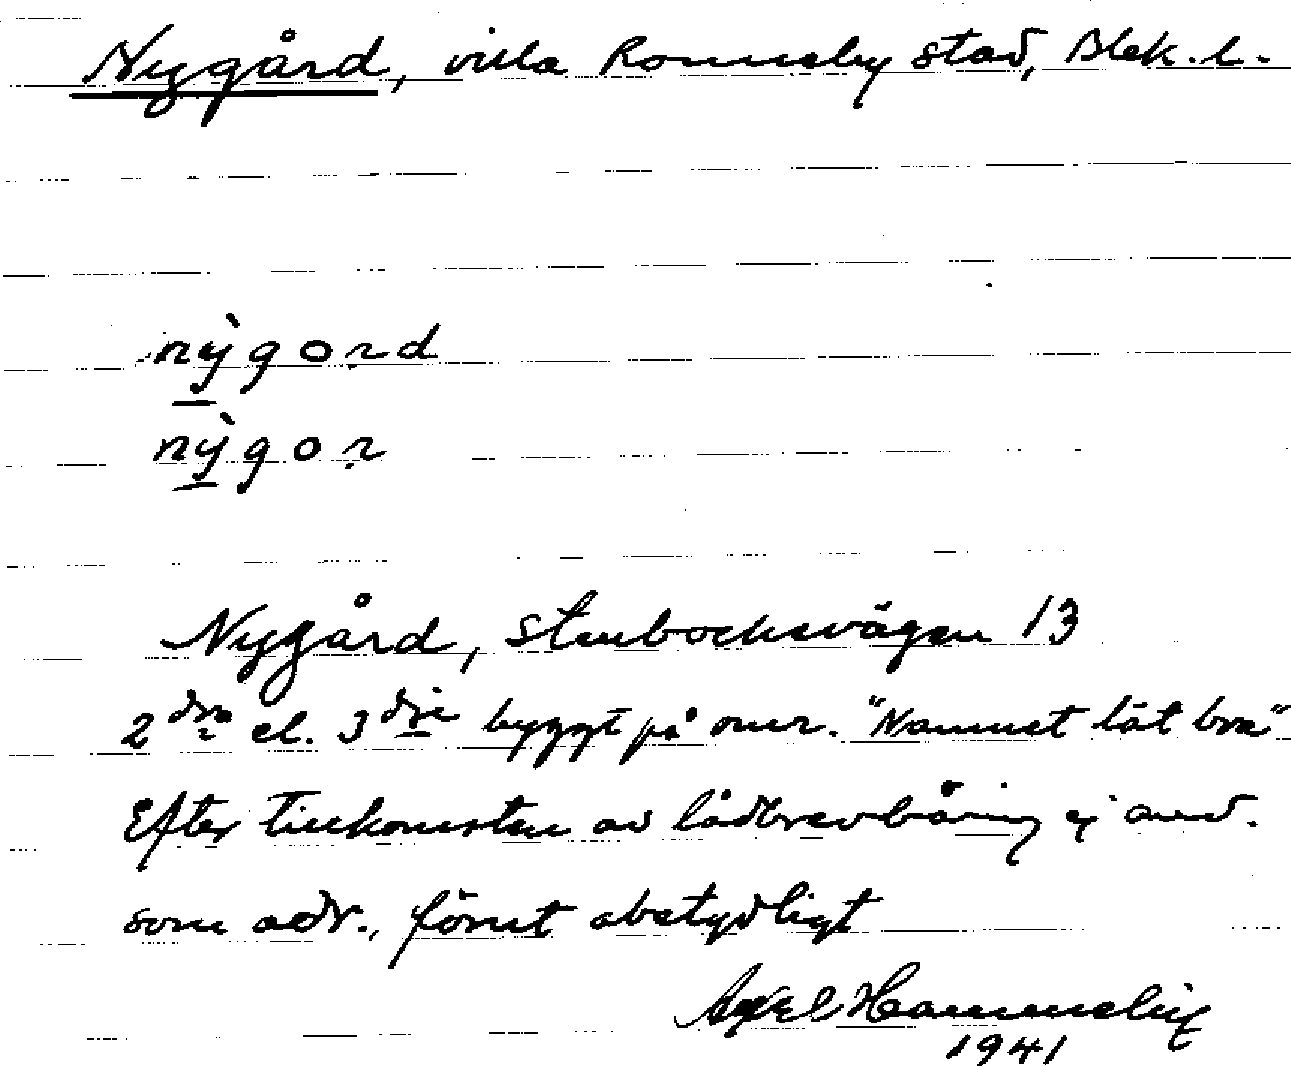 Nygård, villa Ronneby stad, Blek. l.
nỳgord
nỳgor
Nygård, Stenbocksvägen 13
2dra el. 3dje byggt på omr. "Namnet lät bra"
Efter tillkomsten av lådbrevbäring ej anv.
som adr., förut obetydligt
Axel Hammelin
1941